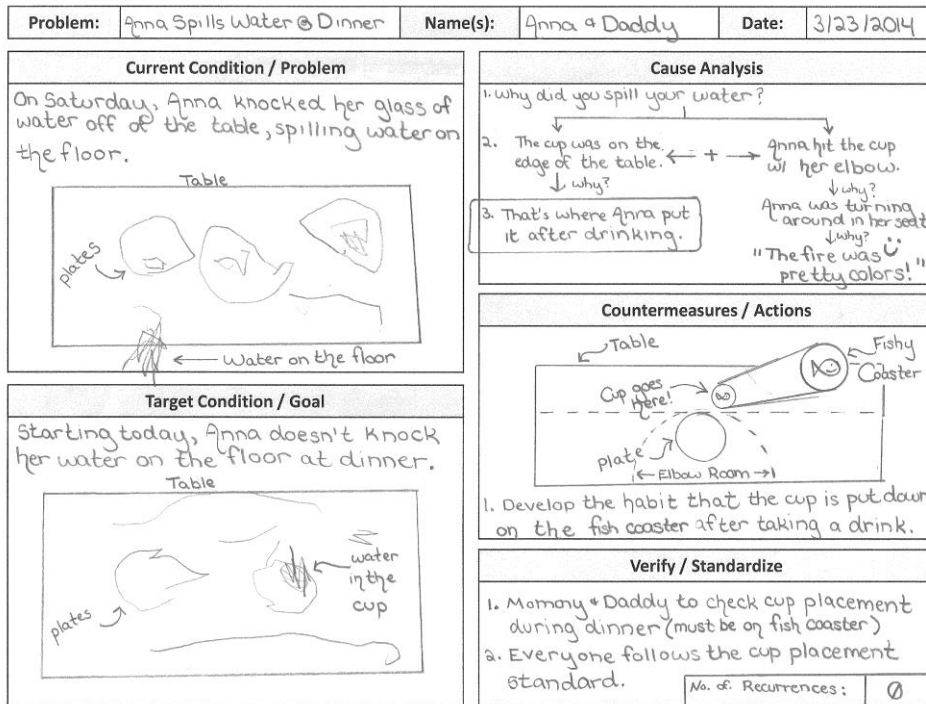 Problem: Anna Spills Water @ Dinner Name(s): Anna & Daddy Date: 3/23/2014
Current Condition / Problem
On Saturday, Anna knocked her glass of
water off of the table, spilling water on
the floor.
Table
plates
water on the floor
Target Condition / Goal
Starting today, Anna doesn't knock
her water on the floor at dinner.
Table
water
in the
cup
plates
Cause Analysis
1. Why did you spill your water?
2. The cup was on the
edge of the table.
+
Anna hit the cup
w/ her elbow.
why?
why?
3. That's where Anna put
it after drinking.
Anna was turning
around in her seat
why?
"The fire was
pretty colors!"
Countermeasures / Actions
Table
Fishy
Coaster
Cup goes
here!
plate
Elbow Room
1. Develop the habit that the cup is put down
on the fish coaster after taking a drink.
Verify / Standardize
1. Mommy & Daddy to check cup placement
during dinner (must be on fish coaster)
2. Everyone follows the cup placement
standard.
No. of Recurrences: 0